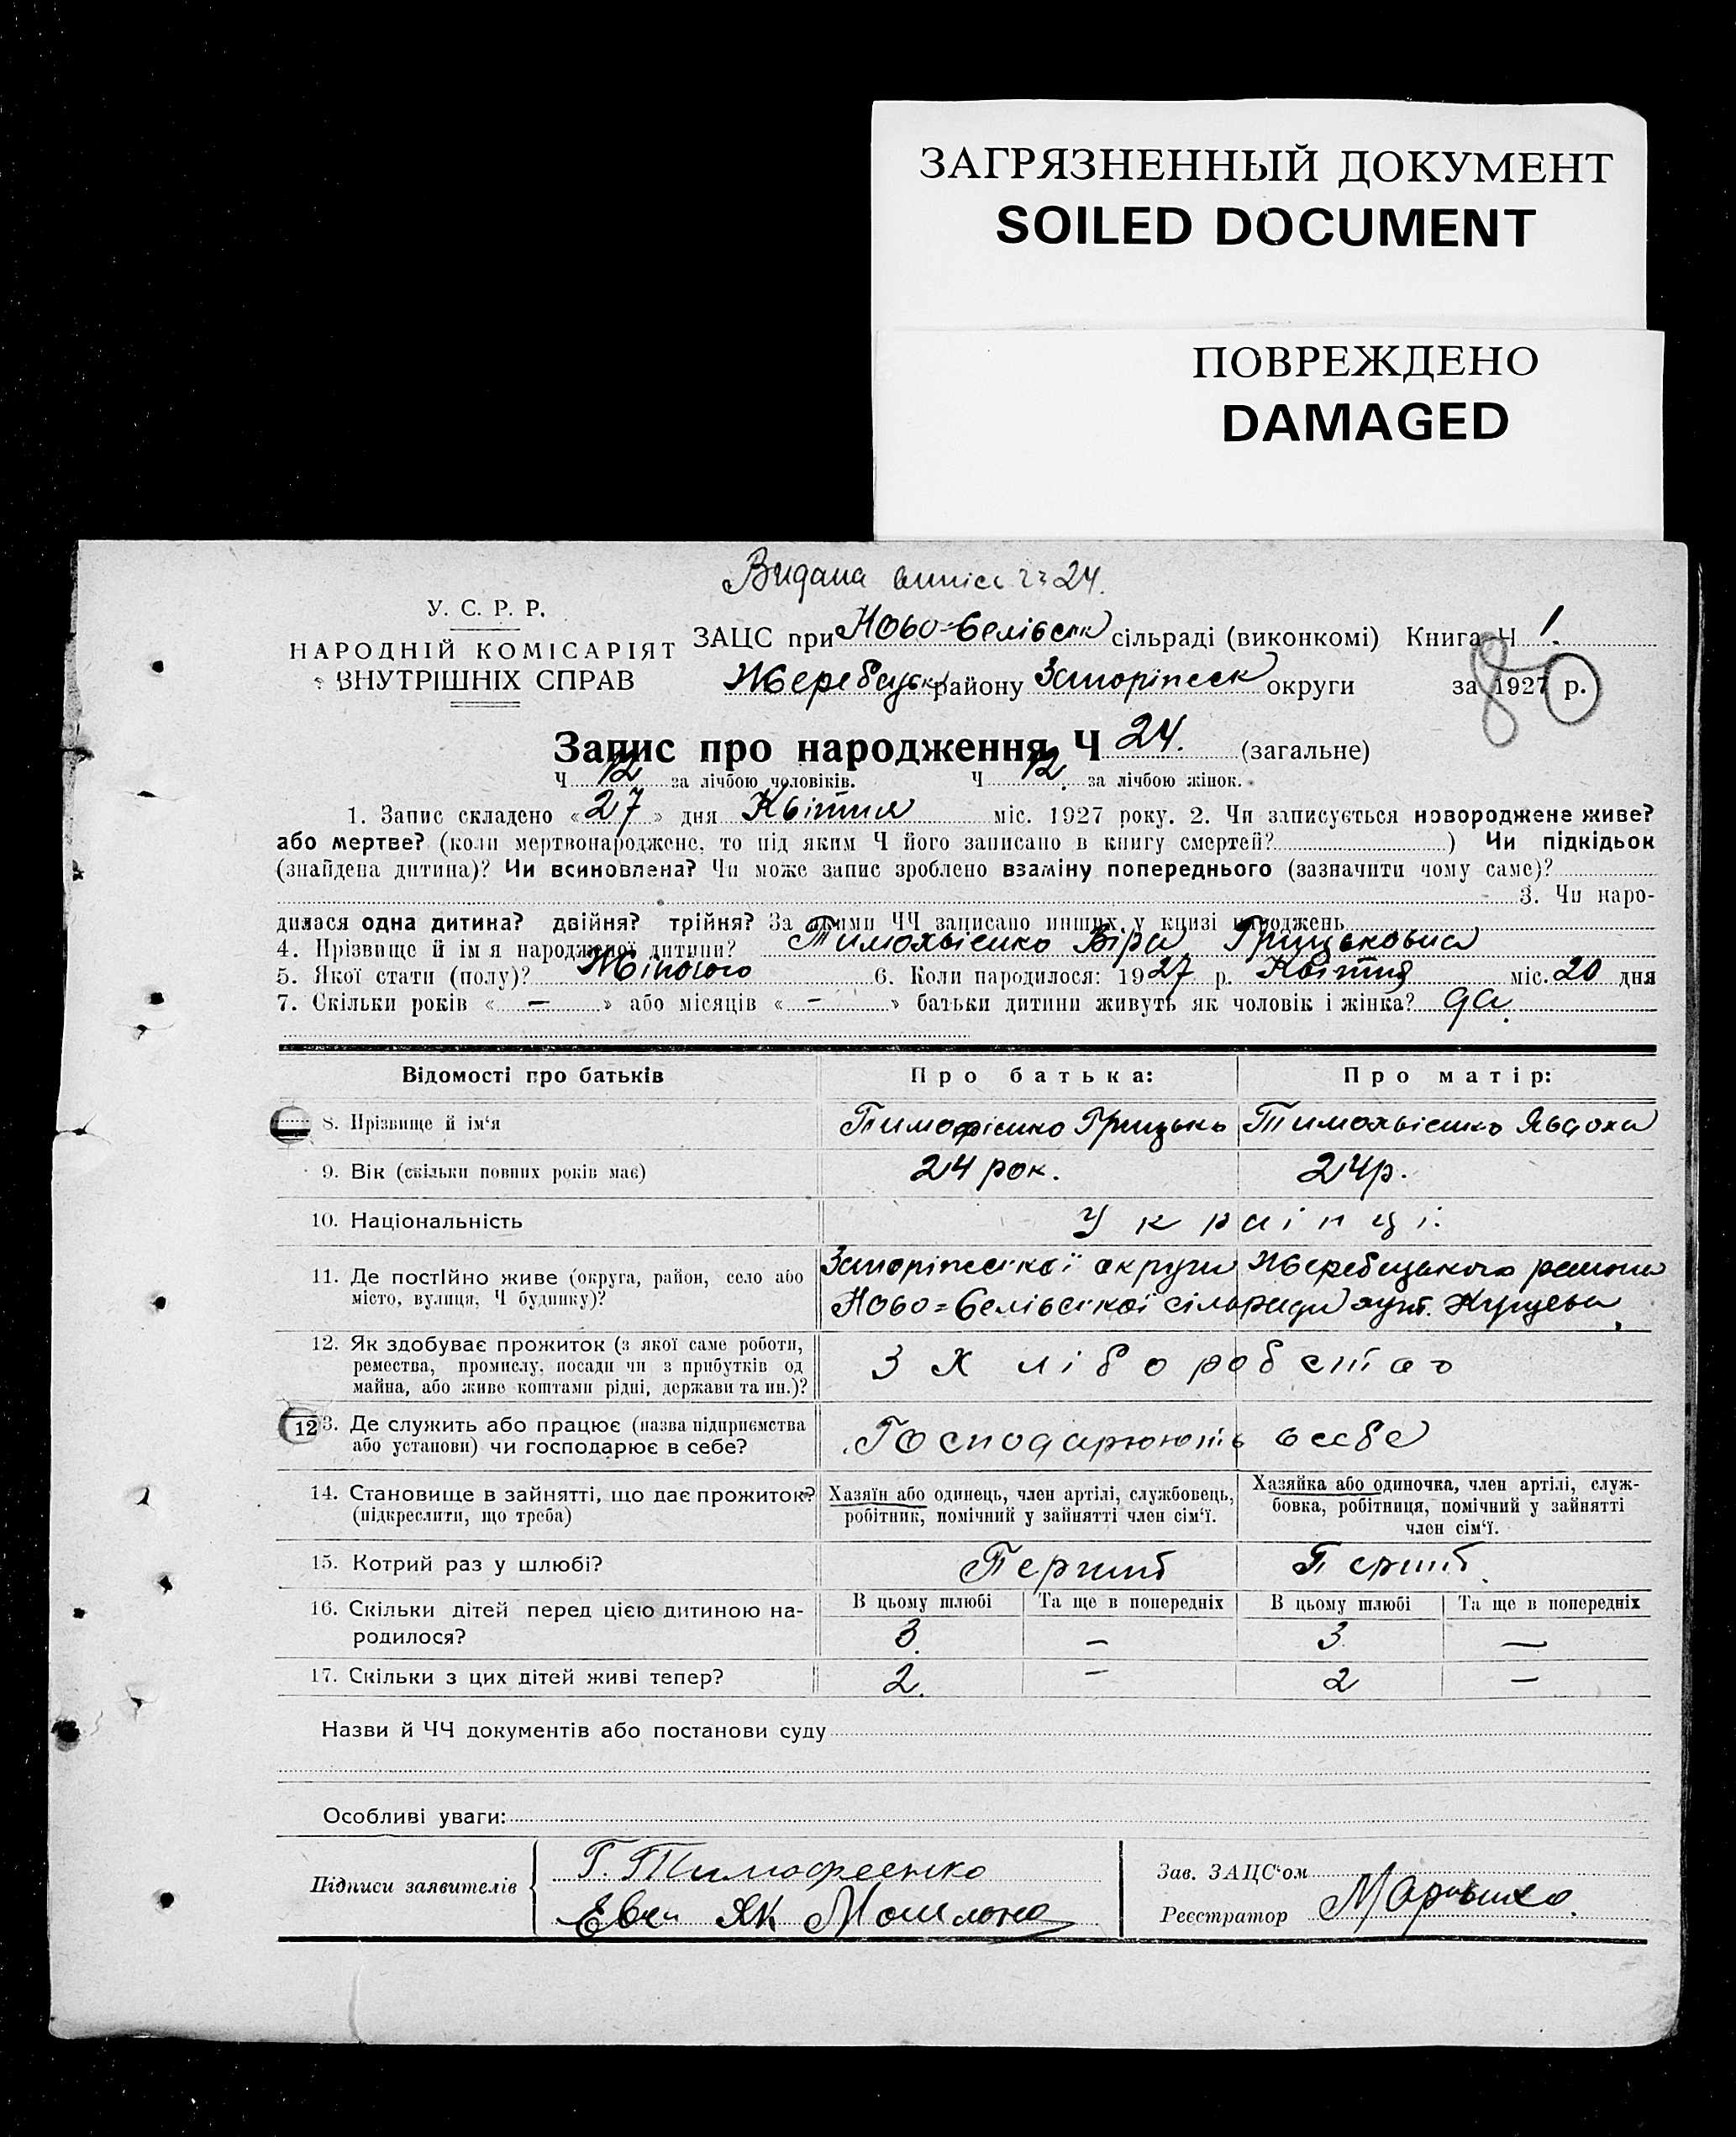 ЗАГРЯЗНЕННЫЙ ДОКУМЕНТ
SOILED DOCUMENT
ПОВРЕЖДЕНО
DAMAGED
Видана 24.
У. С. Р. Р.
НАРОДНІЙ КОМІСАРІЯТ
ВНУТРІШНІХ СПРАВ
ЗАЦС при Ново-Велівськ сільраді (виконкомі) Книга Ч 1.
Жеребецьк району Запоріжськ округи за 1927 р.
80
Запис про народження Ч 24. (загальне)
Ч 12 за лічбою чоловіків. Ч 12 за лічбою жінок.
1. Запис складено «27» дня Квітня міс. 1927 року. 2. Чи записується новороджене живе?
або мертве? (коли мертвонароджене, то під яким Ч його записано в книгу смертей? ) Чи підкідьок
(знайдена дитина)? Чи всиновлена? Чи може запис зроблено взаміну попереднього (зазначити чому саме)?
3. Чи наро-
дилася одна дитина? двійня? трійня? За якими ЧЧ записано инших у книзі народжень
4. Прізвище й ім я народженої дитини? Тимохвієнко Віра Грицьковна
5. Якої стати (полу)? Жіночого 6. Коли народилося: 1927 р. Квітня міс. 20 дня
7. Скільки років « — » або місяців « – » батьки дитини живуть як чоловік і жінка? да.
Відомості про батьків Про батька: Про матір:
8. Прізвище й ім‘я Тимофієнко Грицько Тимохвієнко Явдоха
9. Вік (скільки повних років має) 24 рок. 24 р.
10. Національність Українці.
11. Де постійно живе (округа, район, село або
місто, вулиця, Ч будинку)?
Запоріжської округи Жеребецького району
Ново=Велівської сільради хут.
12. Як здобуває прожиток (з якої саме роботи,
ремества, промислу, посади чи з прибутків од
майна, або живе коштами рідні, держави та ин.)?
З Хліборобства
12
13. Де служить або працює (назва підприємства
або установи) чи господарює в себе?
Господарюють в себе
14. Становище в зайнятті, що дає прожиток?
(підкреслити, що треба)
Хазяїн або одинець, член артілі, службовець,
робітник, помічний у зайнятті член сім‘ї.
Хазяйка або одиночка, член артілі, служ-
бовка, робітниця, помічний у зайнятті
член сім‘ї.
15. Котрий раз у шлюбі? Перший Перший
16. Скільки дітей перед цією дитиною на-
родилося?
В цьому шлюбі Та ще в попередніх В цьому шлюбі Та ще в попередніх
3. — 3 —
17. Скільки з цих дітей живі тепер? 2. – 2 –
Назви й ЧЧ документів або постанови суду
Особливі уваги:
Підписи заявителів
Г. Тимофеенко
Зав. ЗАЦС‘ом
Реєстратор